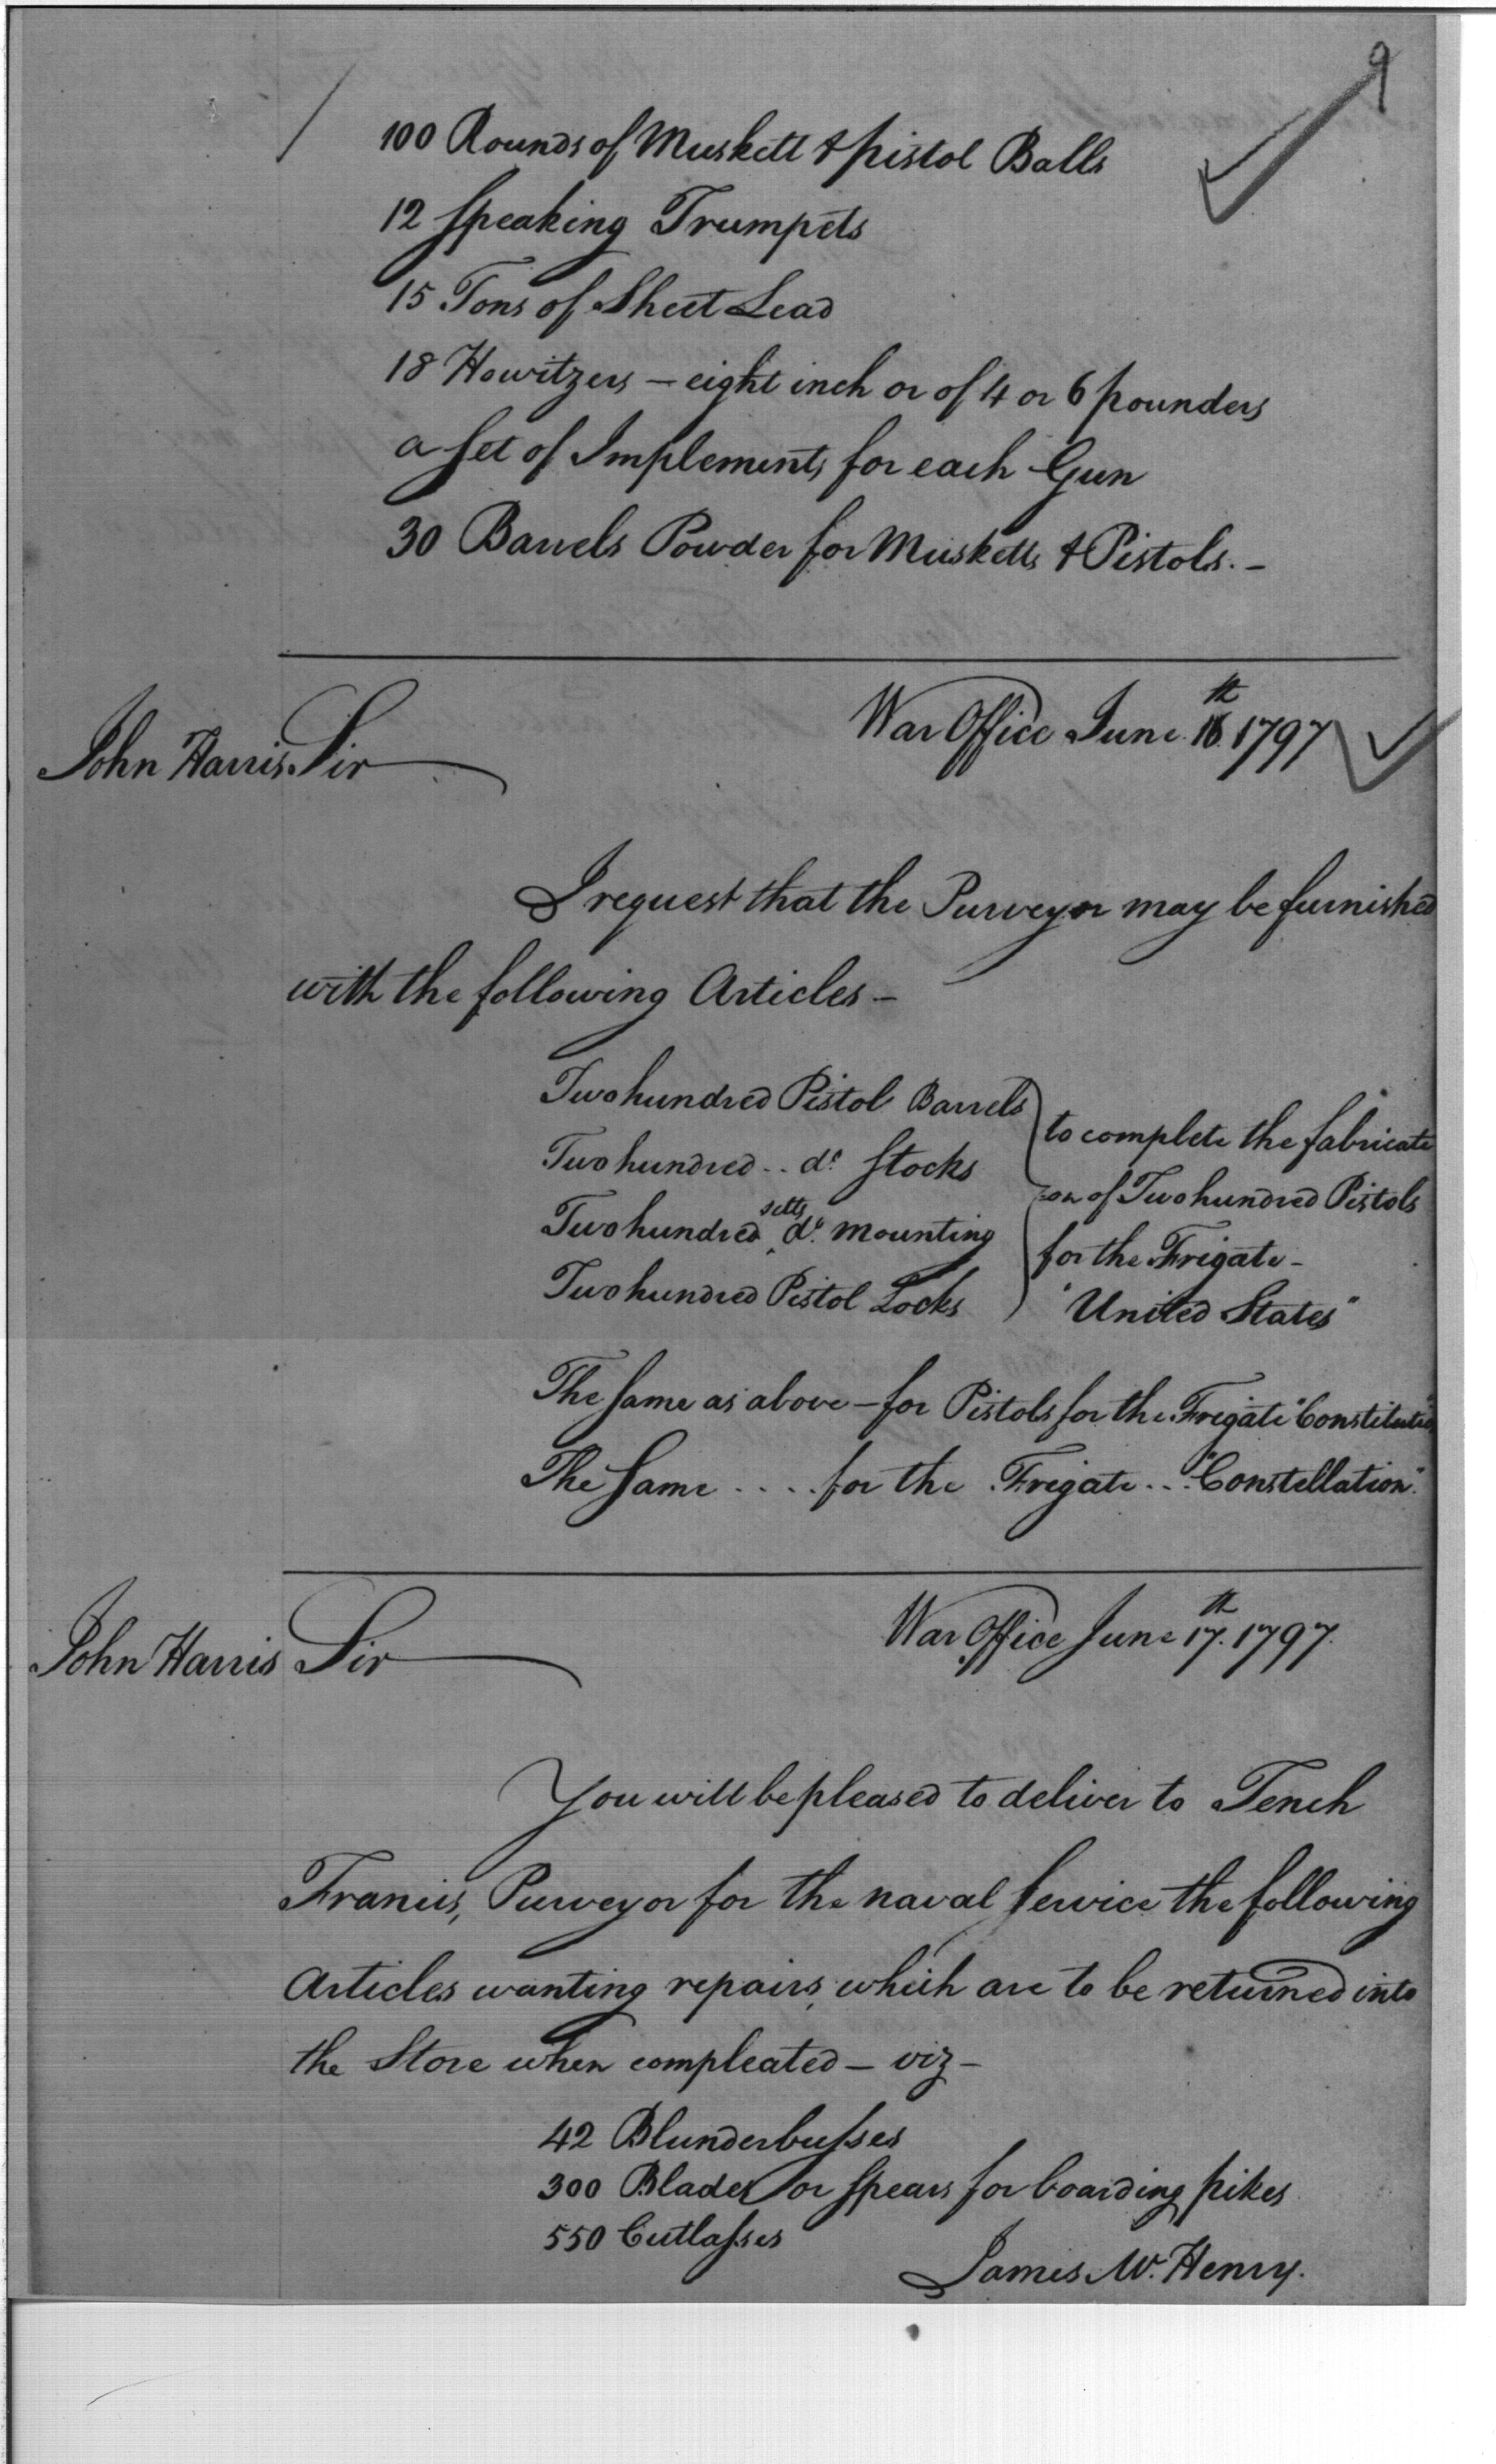 9
100 Rounds of Muskett & pistol Balls
12 Speaking Trumpets
15 Tons of Sheet Lead
18 Howitzers – eight inch or of 4 or 6 pounders
a Set of Implements for each Gun
30 Barrels Powder for Musketts & Pistols. –
War Office June 16th 1797
John Harris. Sir
I request that the Purveyor may be furnished
with the following Articles –
Two hundred Pistol Barrels
Two hundred .. do Stocks
Two hundred setts do. mounting
Two hundred Pistol Locks
to complete the fabricati
ion of Two hundred Pistols
for the Frigate –
"United States"
The Same as above – for Pistols for the Frigate "Constitution"
The Same .... for the Frigate ... "Constellation".
War Office June 17th. 1797.
John Harris Sir
You will be pleased to deliver to Tench
Francis, Purveyor for the naval Service the following
Articles wanting repairs, which are to be returned into
the Store when compleated – viz –
42 Blunderbusses
300 Blades or Spears for boarding pikes
550 Cutlasses
James Mc.Henry.